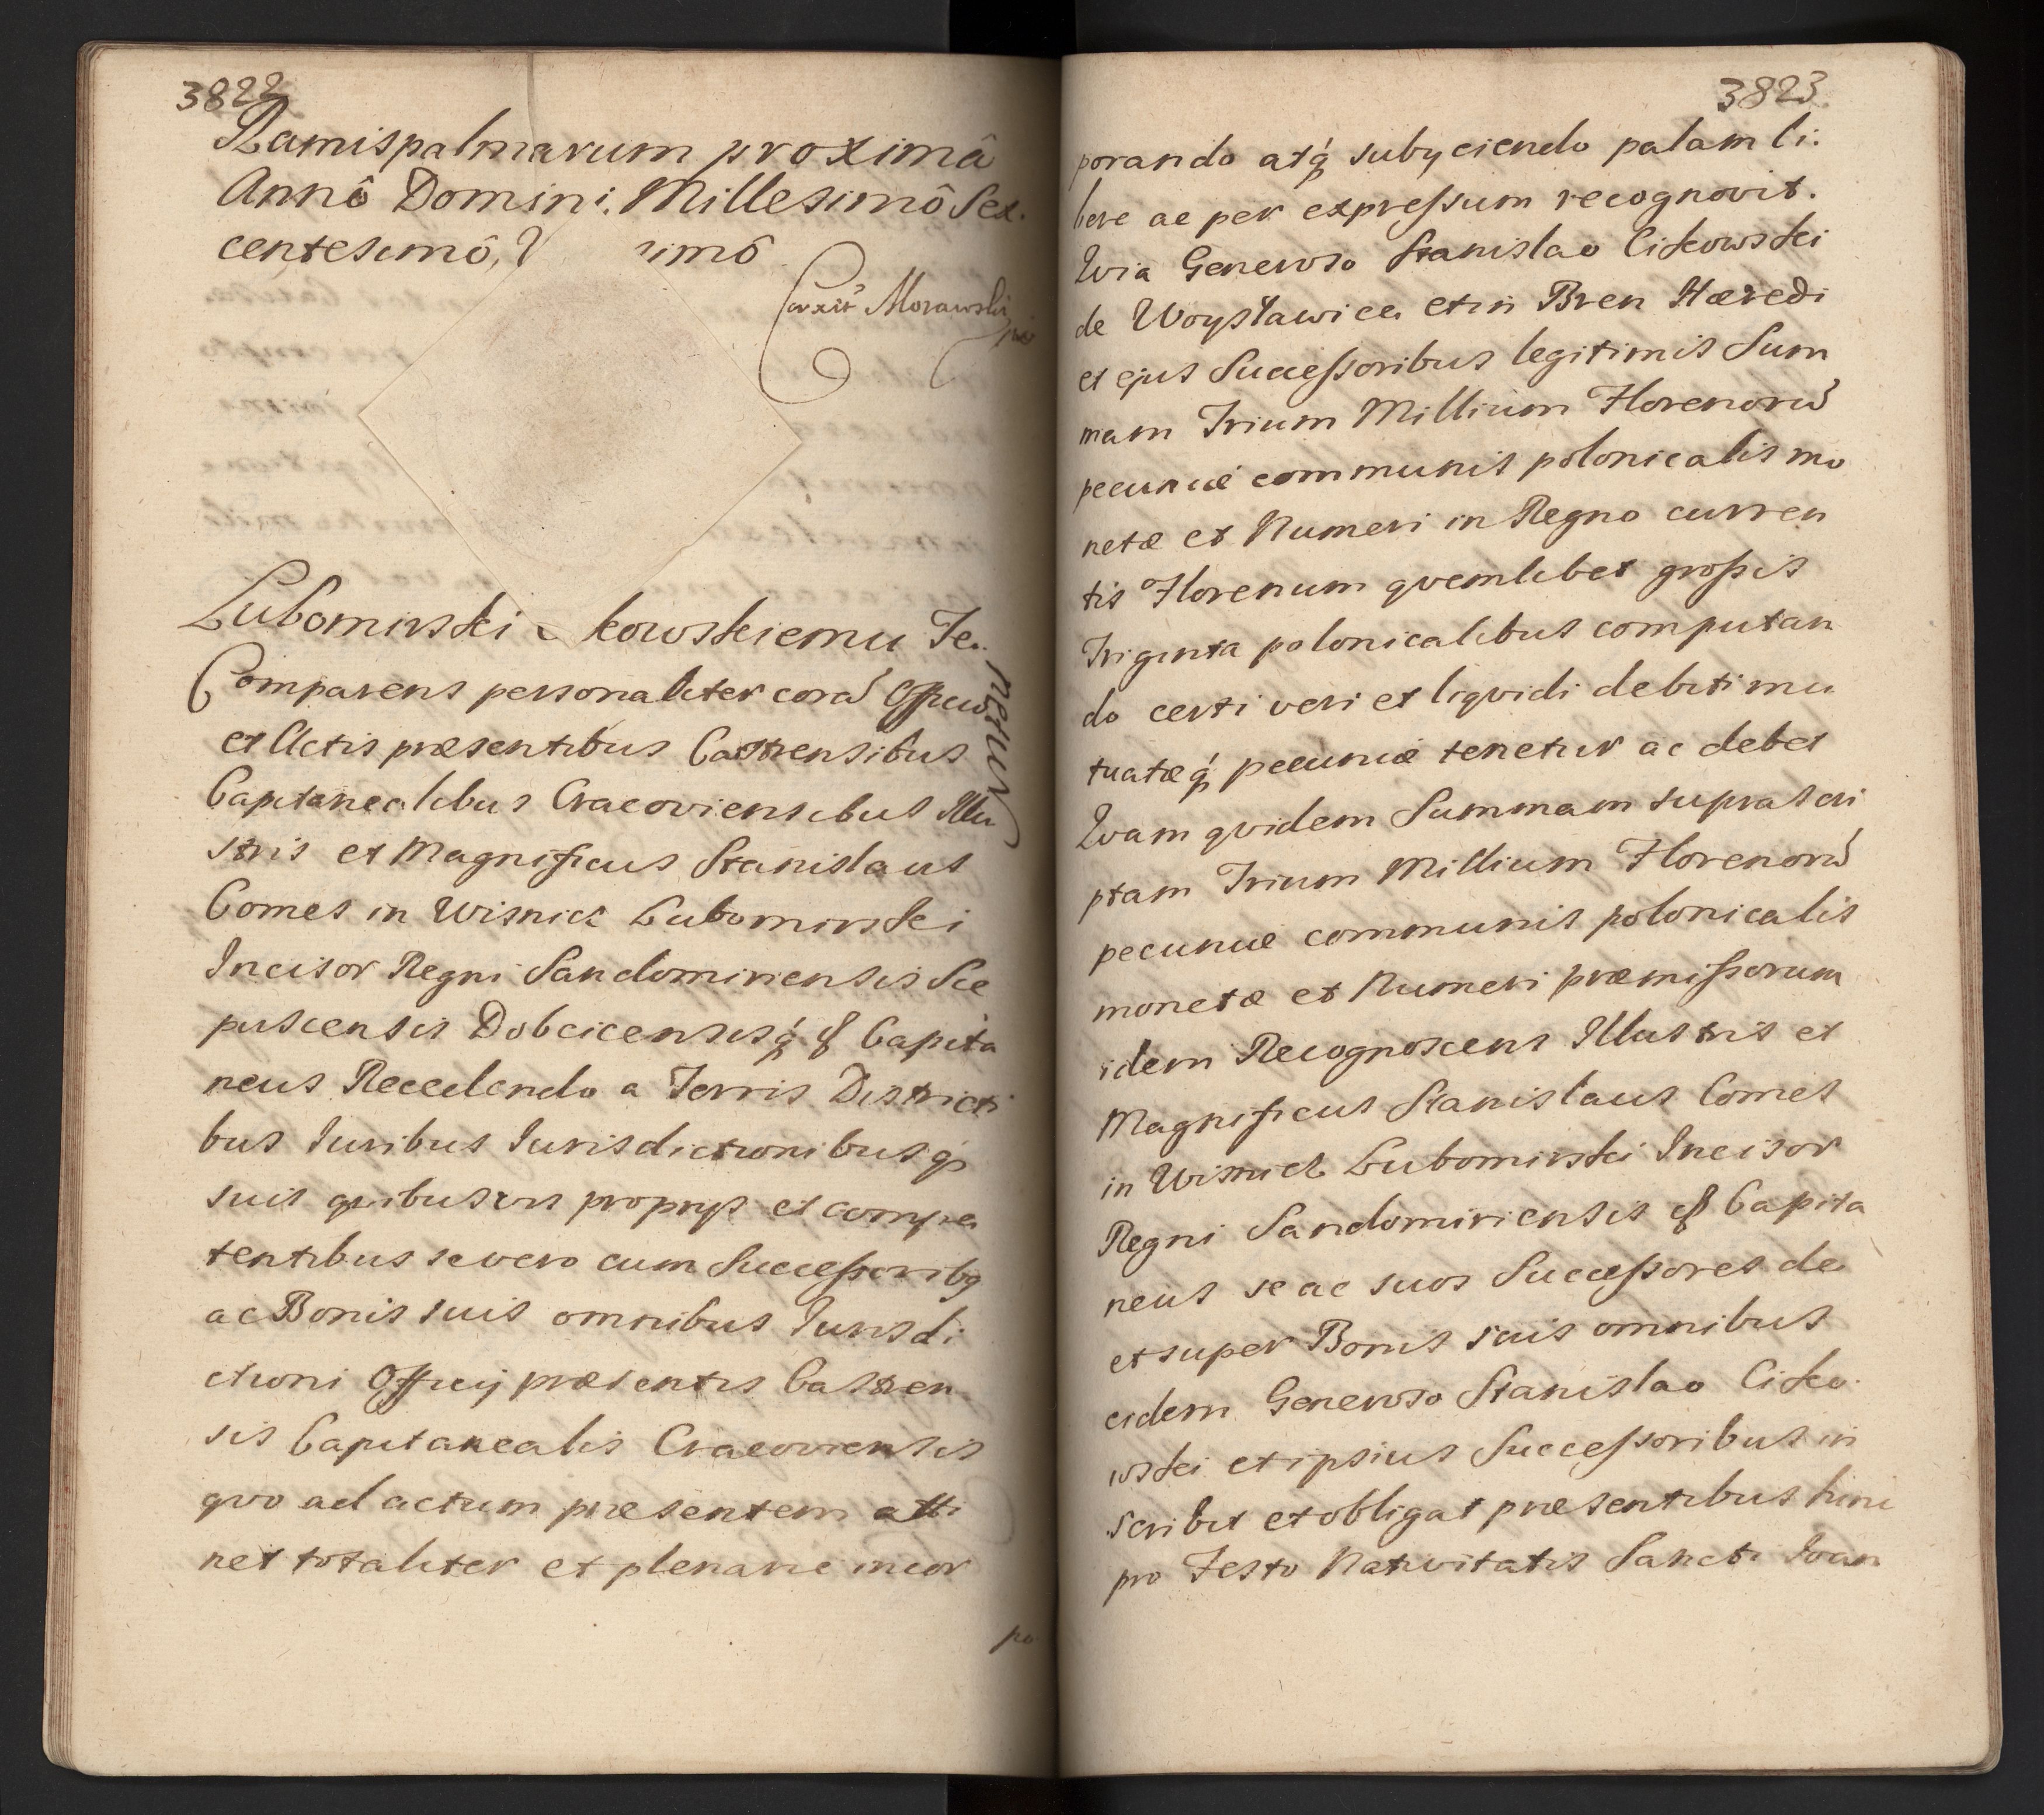 3822
Ramispalmarum proximâ
Annô Domini Millesimô Sex.
centesimô, V imô
Coxit Morawski
Lubomirski kowskiemu Te.
netur
Comparens personaliter corã Officio
et Actis præsentibus Castrensibus
Capitanealibus Cracoviensibus Illu
stris et Magnificus Stanislaus
Comes in Wisnicz Lubomirski
Incisor Regni Sandomiriensis Sce
pusiensis Dobcicensisq́ Capita
neus Recedendo a Terris Districti
bus Iuribus Iurisdictionibusq́
suis quibusvis proprys et compe
tentibus se vero cum Successoribq
ac Bonis suis omnibus Iurisdi
ctioni Officij præsentis Castren
sis Capitanealis Cracoviensis
qvo ad actum præsentem atti
net totaliter et plenarie incor
po
3823
porando atq́ subyciendo palam li.
bere ac per expressum recognovit.
Qvia Generoso Stanislao Cikowski
de Woysławice et in Bren Hæredi
et ejus Successoribus legitimis Sum
mam Trium Millium Florenorũ
pecuniæ communis polonicalis mo
netæ et Numeri in Regno curren
tis Florenum qvemlibet grossis
Triginta polonicalibus computan
do certi veri et liqvidi debiti mu
tuatæq́ pecuniæ tenetur ac debet
Qvam qvidem Summam suprascri
ptam Trium Millium Florenorũ
pecuniæ communis polonicalis
monetæ et Numeri præmissorum
idem Recognoscens Illustris et
Magnificus Stanislaus Comes
in Wisnicz Lubomirski Incisor
Regni Sandomiriensis Capita
neus se ac suos Successores de
et super Bonis suis omnibus
eidem Generoso Stanislao Ciko.
wski et ipsius Successoribus in
scribit et obligat præsentibus hinc
pro Festo Nativitatis Sancti Ioan